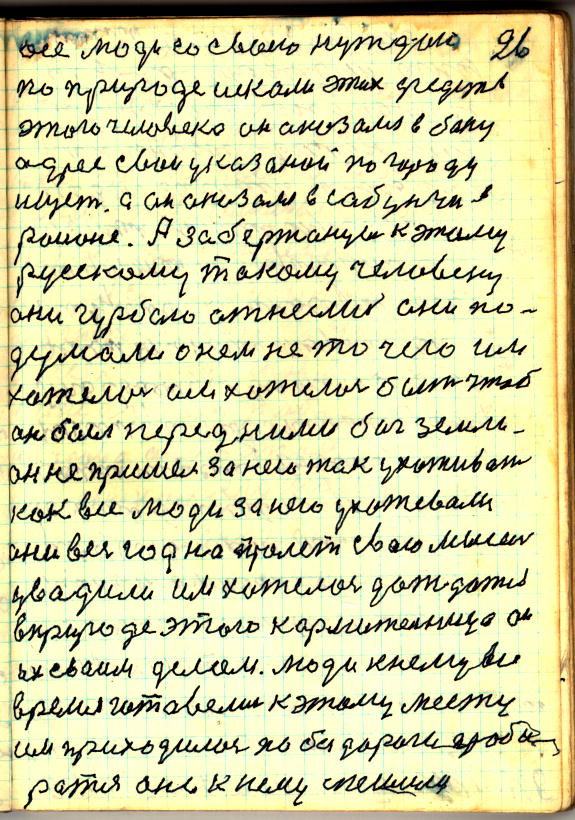 26
все люди со своею нуждою
по природе искали этих средств
этого человеко он оказался в баку
адрес свой указаной по городу
ищет. а он оказался в сабунчи в
районе. А за бертануль к этому
русскому такому человеку
они грубо отнесли они по-
думали о нем не то чего им
хотелося им хотелося было чтоб
он был перед ними бог земли-
он не пришел за нею так ухоживат
как все люди за нею ухожевали
они вся год на свою мысль
уводили им хотелося дождатся
в природе этого кармителница он
их своим делом. люди к нему все
время готовели к этому месту
им приходилося по бездороги проби
ратся они к нему спешили